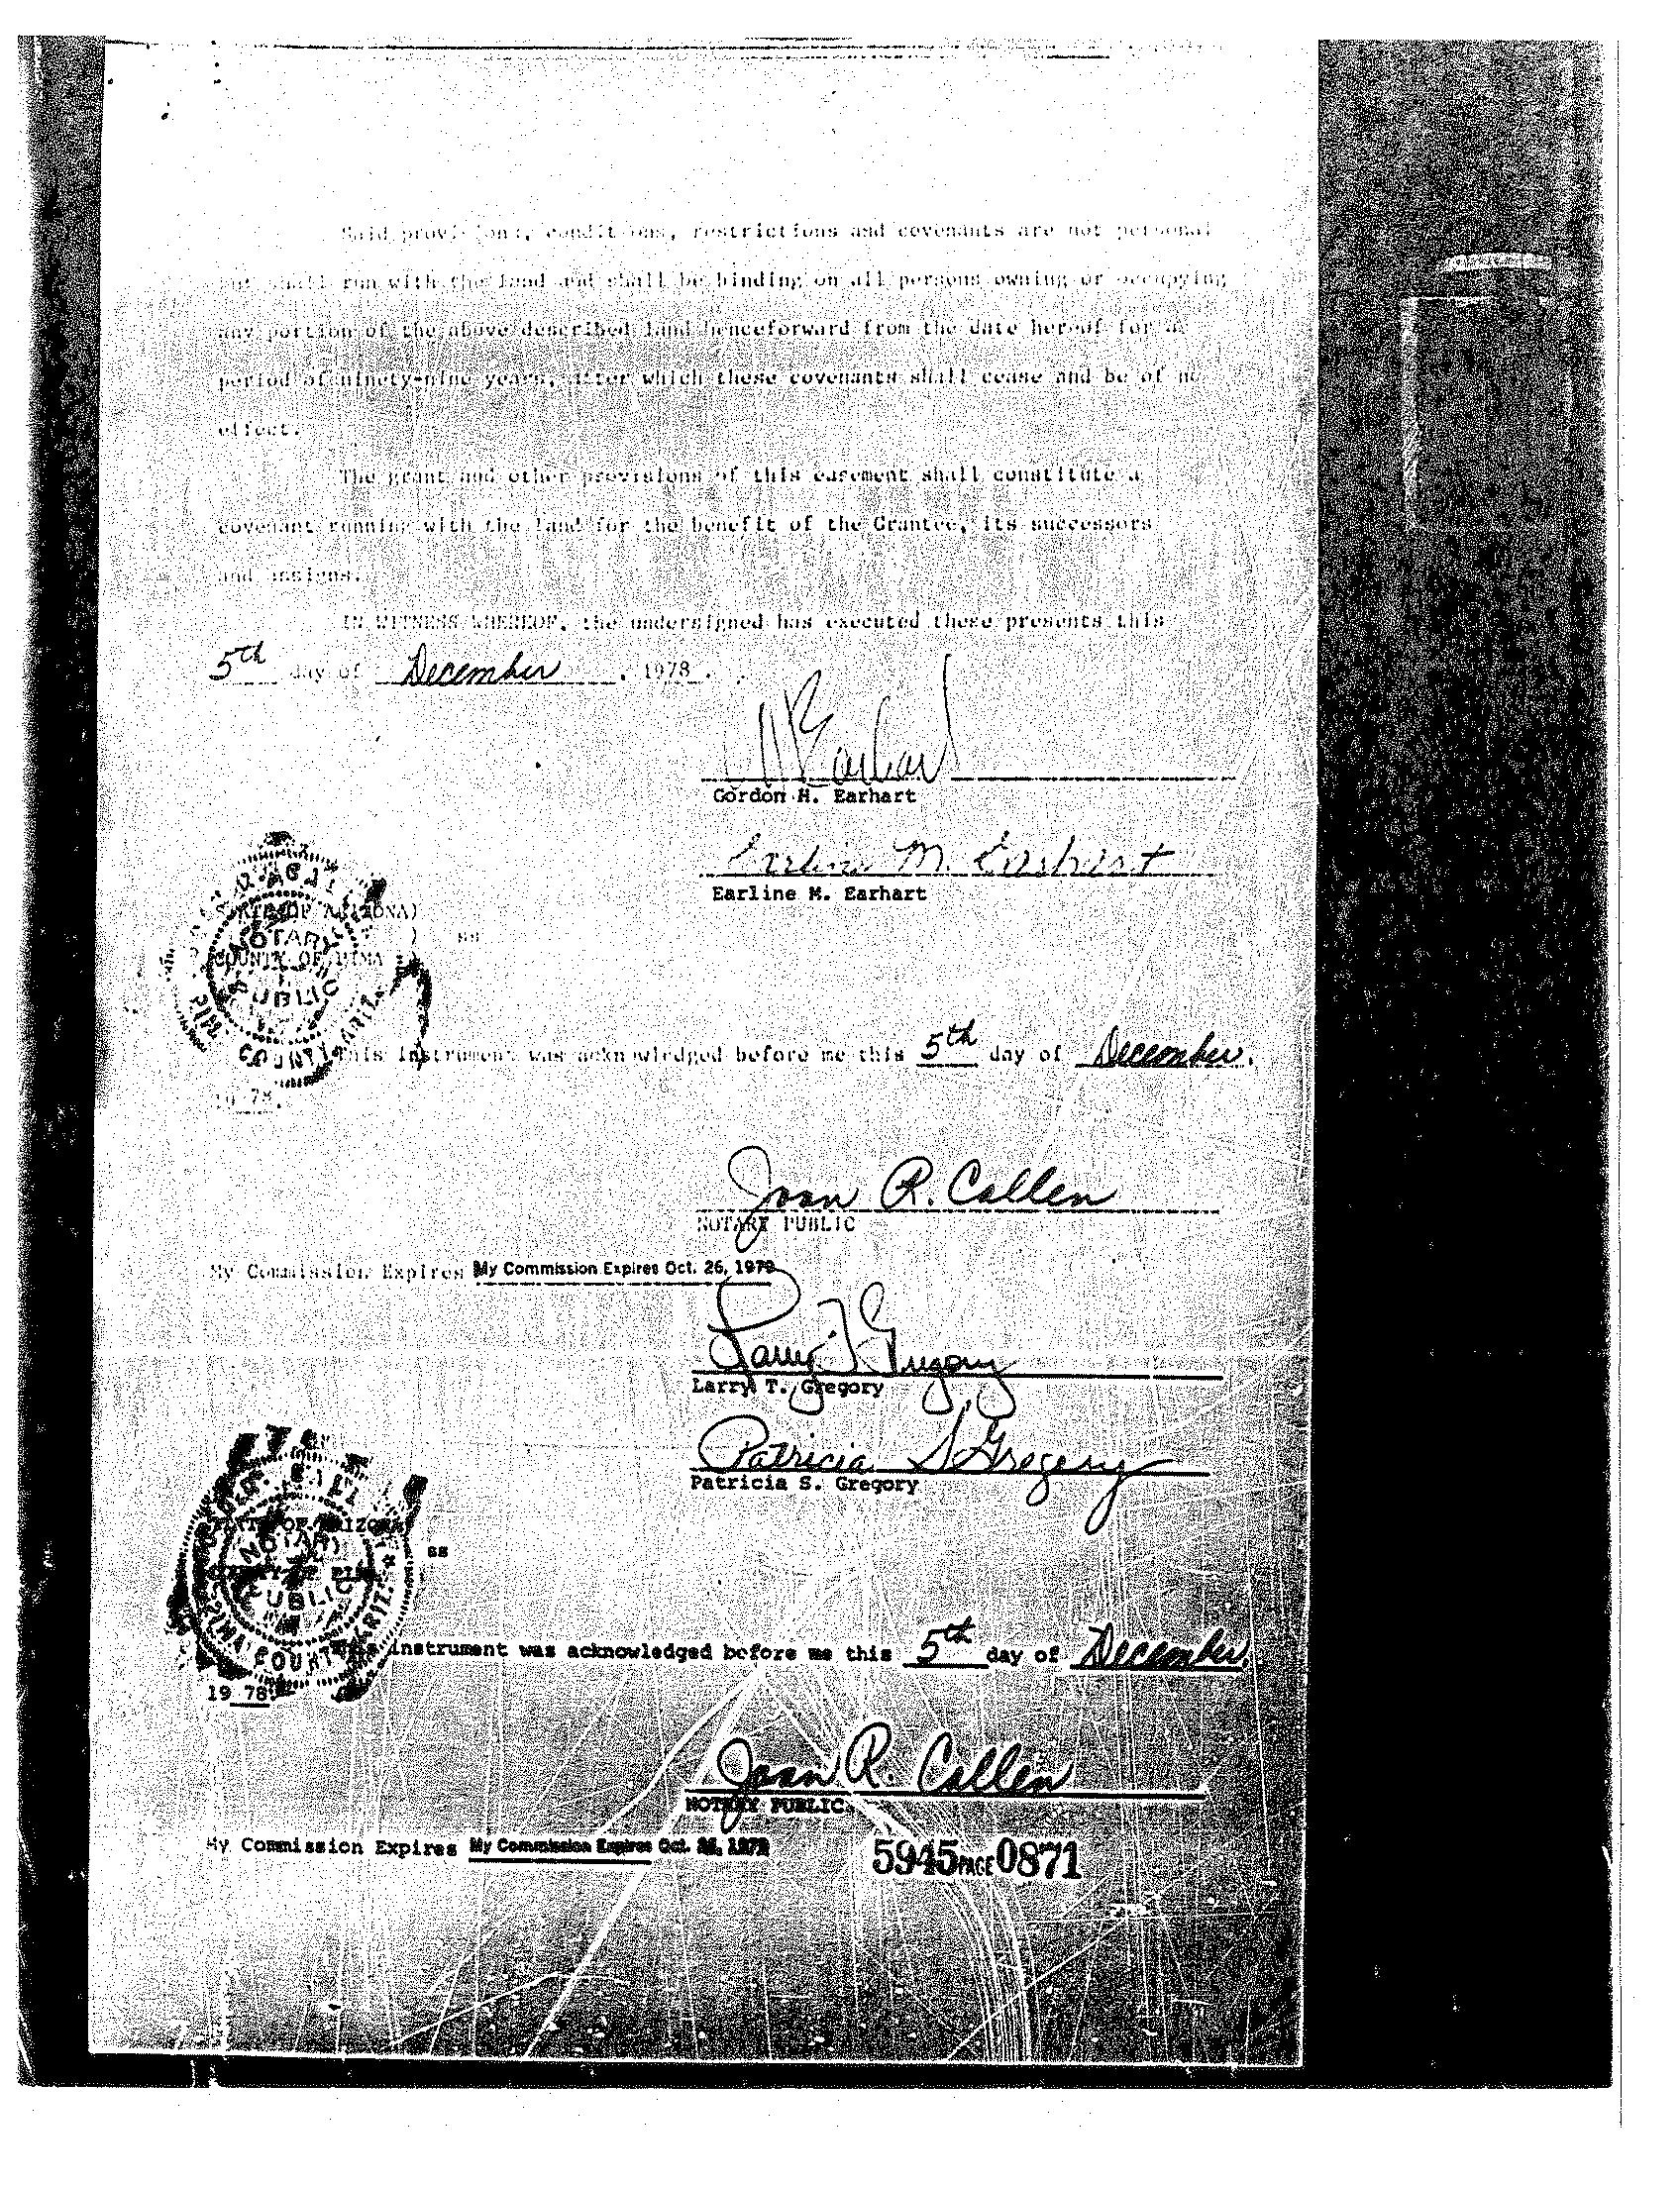 Said provisions, conditions, restrictions and covenants are not personal
but shall run with the land and shall be binding on all persons owning or occupying
any portion of the above described land henceforward from the date hereof for a
period of ninety-nine years, after which these covenants shall cease and be of no
effect.
The grant and other provisions of this easement shall constitute a
covenant running with the land for the benefit of the Grantee, its successors
and assigns.
IN WITNESS WHEREOF, the undersigned has executed these presents this
5th day of December, 1978.
Earhart
Gordon H. Earhart
Earline M. Earhart
Earline M. Earhart
STATE OF ARIZONA)
) ss
COUNTY OF PIMA
NOTARY
PUBLIC
PIMA COUNTY ARIZ.
This instrument was acknowledged before me this 5th day of December,
19 78.
Joan R. Callen
NOTARY PUBLIC
My Commission Expires My Commission Expires Oct. 26, 1979
Larry T. Gregory
Larry T. Gregory
Patricia S Gregory
Patricia S. Gregory
STATE OF ARIZONA
ss
COUNTY OF PIMA
NOTARY
PUBLIC
PIMA COUNTY ARIZ.
This instrument was acknowledged before me this 5th day of December,
19 78.
Joan R. Callen
NOTARY PUBLIC
My Commission Expires My Commission Expires Oct. 26, 1979
5945 PAGE 0871